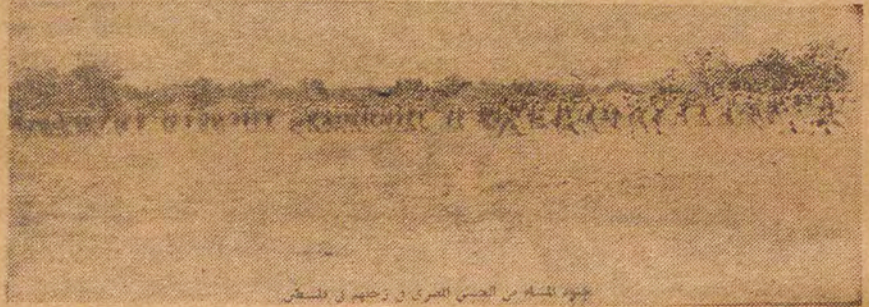 جنود المشاه من الجيش المصرى فى زحفهم فى فلسطين